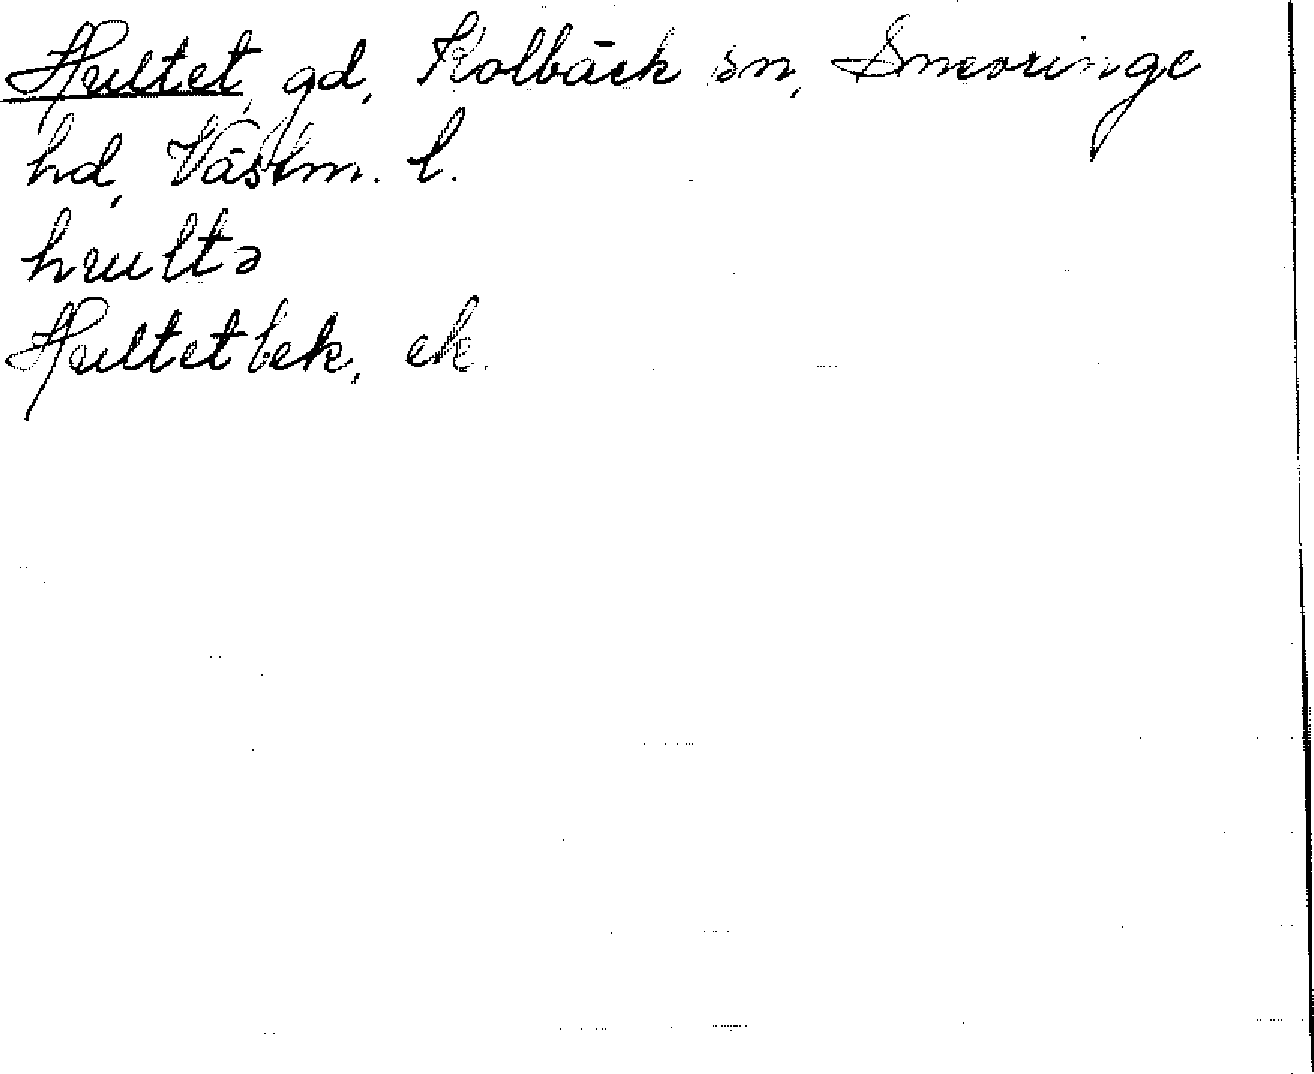 Hultet, gd, Kolbäck sn, Snevringe
hd, Västm. l.
hultə
Hultet bek, ek.